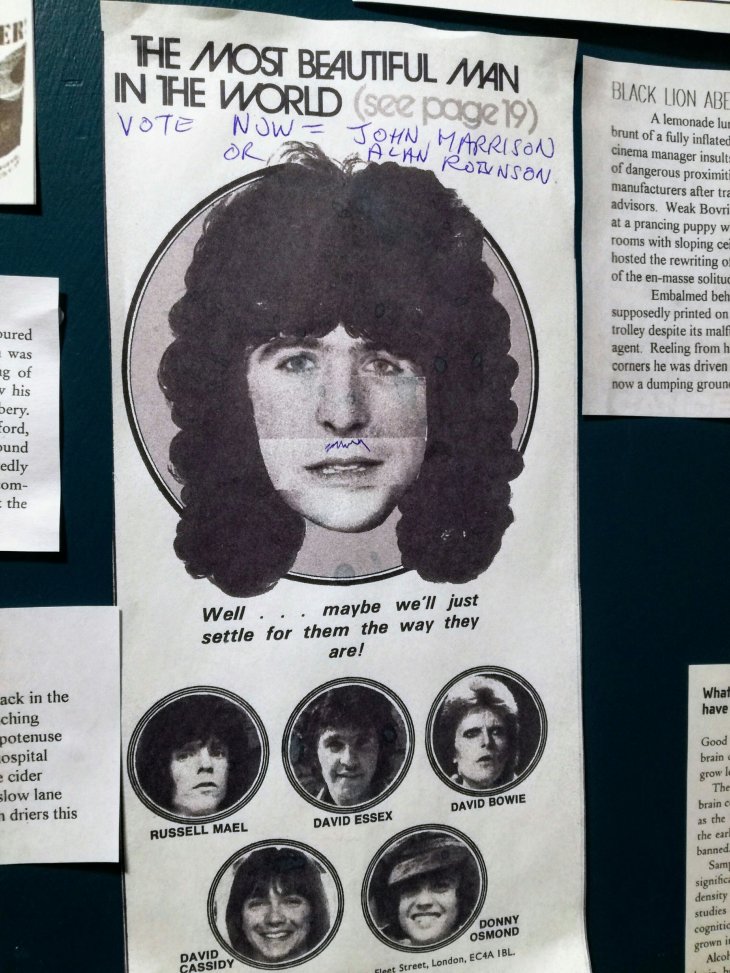 THE MOST BEAUTIFUL MAN
IN THE WORLD (see page 19)
VOTE NOW = JOHN MARRISON
OR ALAN ROBINSON.
Well . . . maybe we'll just
settle for them the way they
are!
RUSSELL MAEL
DAVID ESSEX
DAVID BOWIE
DAVID
CASSIDY
DONNY
OSMOND
Fleet Street, London, EC4A 1BL.
ER
oured
was
ng of
his
bery.
ford,
ound
edly
om-
the
ack in the
ching
potenuse
ospital
cider
slow lane
driers this
BLACK LION ABE
A lemonade lu
brunt of a fully inflated
cinema manager insult
of dangerous proximiti
manufacturers after tra
advisors. Weak Bovri
at a prancing puppy w
rooms with sloping cei
hosted the rewriting of
of the en-masse solitud
Embalmed beh
supposedly printed on
trolley despite its malf
agent. Reeling from h
corners he was driven
now a dumping groun
What
have
Good
brain
grow l
The
brain c
as the
the earl
banned
Samp
significa
density
studies
cognitio
grown i
Alcoh